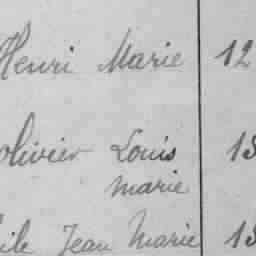 Henri Marie 12
olivier Louis 18
marie
ile Jean Marie 18